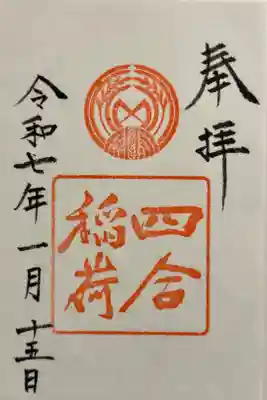 奉拝
四合
稲荷
令和七年一月十五日